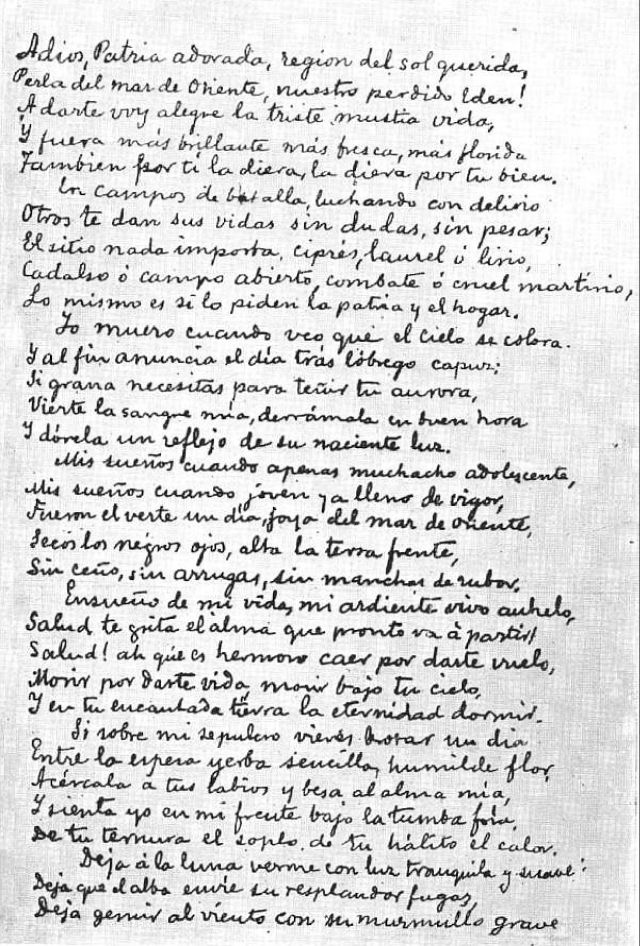 Adios, Patria adorada, region del sol querida,
Perla del mar de Oriente, nuestro perdido Eden!
A darte voy alegre la triste mustia vida,
Y fuera más brillante más fresca, más florida
Tambien por tí la diera, la diera por tu bien.
En campos de batalla, luchando con delirio
Otros te dan sus vidas sin dudas, sin pesar;
El sitio nada importa, ciprés, laurel ó lirio,
Cadalso ó campo abierto, combate ó cruel martirio,
Lo mismo es si lo piden la patria y el hogar.
Yo muero cuando veo que el cielo se colora.
Y al fin anuncia el día trás lóbrego capuz;
Si grana necesitas para teñir tu aurora,
Vierte la sangre mía, derrámala en buen hora
Y dórela un reflejo de su naciente luz.
Mis sueños cuando apenas muchacho adolescente,
Mis sueños cuando joven ya lleno de vigor,
Fueron el verte un día, joya del mar de oriente,
Secos los negros ojos, alta la tersa frente,
Sin ceño, sin arrugas, sin manchas de rubor.
Ensueño de mi vida, mi ardiente vivo anhelo,
Salud te grita el alma que pronto va á partir!
Salud! ah que es hermoso caer por darte vuelo,
Morir por darte vida, morir bajo tu cielo,
Y en tu encantada tierra la eternidad dormir.
Si sobre mi sepulcro vieres brotar un dia
Entre la espesa yerba sencilla, humilde flor,
Acércala a tus labios y besa al alma mía,
Y sienta yo en mi frente bajo la tumba fría,
De tu ternura el soplo, de tu hálito el calor.
Deja á la luna verme con luz tranquila y suave:
Deja que el alba envíe su resplandor fugaz,
Deja gemir al viento con su murmullo grave